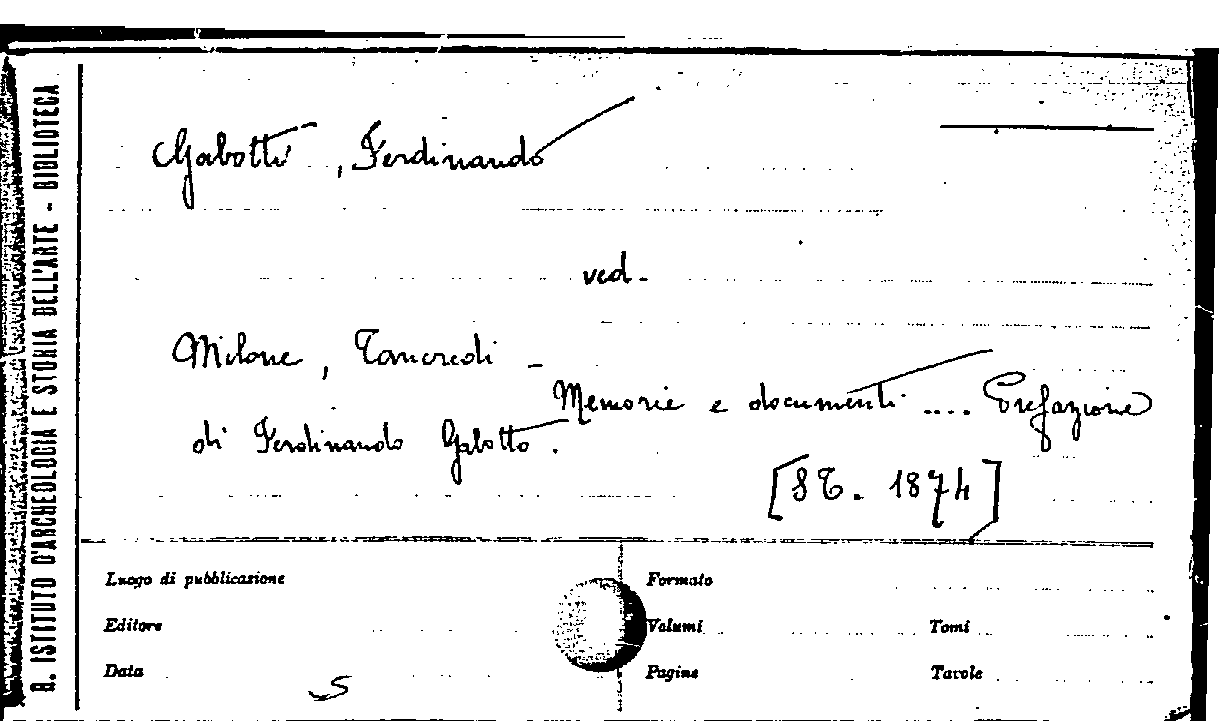 R. ISTITUTO D'ARCHEOLOGIA E STORIA DELL'ARTE - BIBLIOTECA
Gabotto, Ferdinando
ved.
Milone, Tancredi -
Memorie e documenti .... Prefazione
di Ferdinando Gabotto.
[8T. 1874]
Luogo di pubblicazione
Formato
Editore
Volumi
Tomi
Data
Pagine
Tavole
5